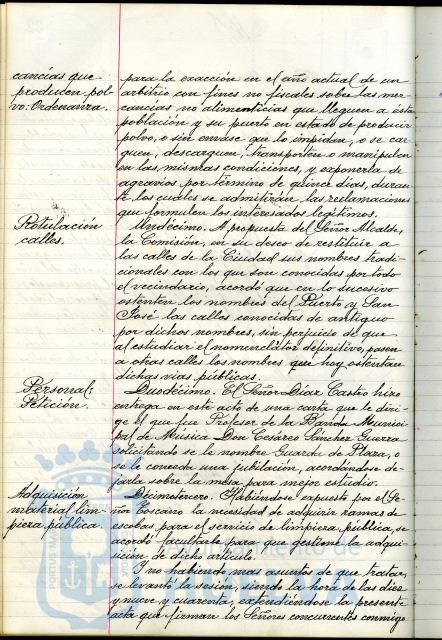 cancías que
producen pol-
vo. Ordenanza.
para la exacción en el año actual de un
arbitrio con fines no fiscales sobre las mer-
cancías no alimenticias que lleguen a esta
población y su puerto en estado de producir
polvo, o sin envase que lo impidan, o se car-
guen, descarguen, transporten o manipulen
en las mismas condiciones, y exponerla de
agravios por término de quince días, duran-
te los cuales se admitirán las reclamaciones
que formulen los interesados legítimos.
Rotulación
calles.
Undécimo. A propuesta del Señor Alcalde,
la Comisión, en su deseo de restituir a
las calles de la Ciudad sus nombres tradi-
cionales con los que son conocidas por todo
el vecindario, acordó que en lo sucesivo
ostenten los nombres del Puerto y San
José las calles conocidas de antiguo
por dichos nombres, sin perjuicio de que
al estudiar el nomenclátor definitivo, pasen
a otras calles los nombres que hoy ostentan
dichas vías públicas.
Personal.
Petición.
Duodécimo. El Señor Díaz Castro hizo
entrega en este acto de una carta que le diri-
ge el que fue Profesor de la Banda Munici-
pal de Música Don Cesáreo Sánchez Guerra
solicitando se le nombre Guarda de Plaza, o
se le conceda una jubilación, acordándose de-
jarla sobre la mesa para mejor estudio.
Adquisición
material lim-
pieza pública
Décimotercero. Habiéndose expuesto por el Se-
ñor Toscano la necesidad de adquirir ramas de
escobas para el servicio de limpieza pública, se
acordó facultarle para que gestione la adqui-
sición de dicho artículo.
Y no habiendo más asuntos de que tratar,
se levantó la sesión, siendo la hora de las diez
y nueve y cuarenta, extendiéndose la presente
acta que firman los Señores concurrentes conmigo